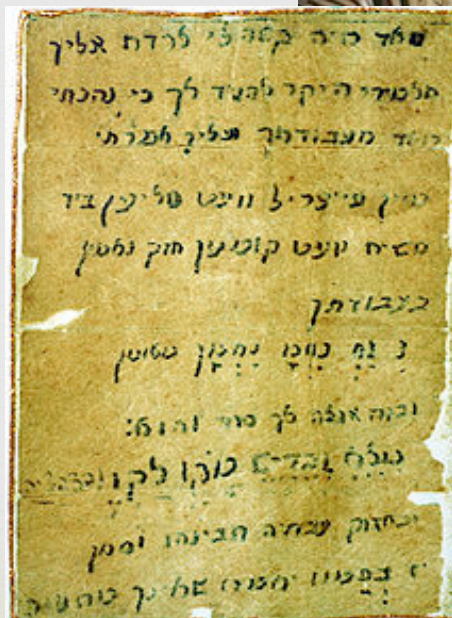 מאד היה קשה לי לרדת אליך
תלמידי היקר להגיד לך כי נהנתי
מאד מעבודתך ועליך אמרתי
מיין פייערל וועט טליען ביז
משיח וועט קומען חזק ואמץ
בעבודתך
נ נַחְ נַחְמָ נַחְמָן מאומן
ובזה אגלה לך סוד והוא:
מלא וגדיש מקו לקו
ובחזוק עבודה תבינהו וסימן
בתמוז יאמרו שאינך מתענה